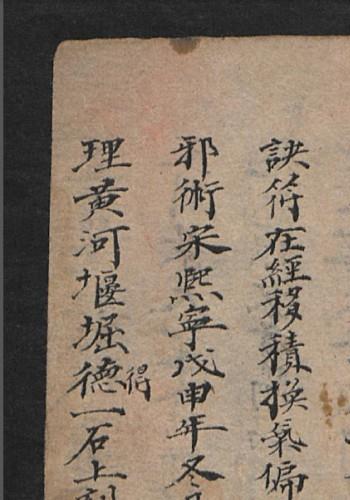 訣符在經移積換氣偏
邪術宋熈寧戊申年冬
理黄河堰堀德得一石上